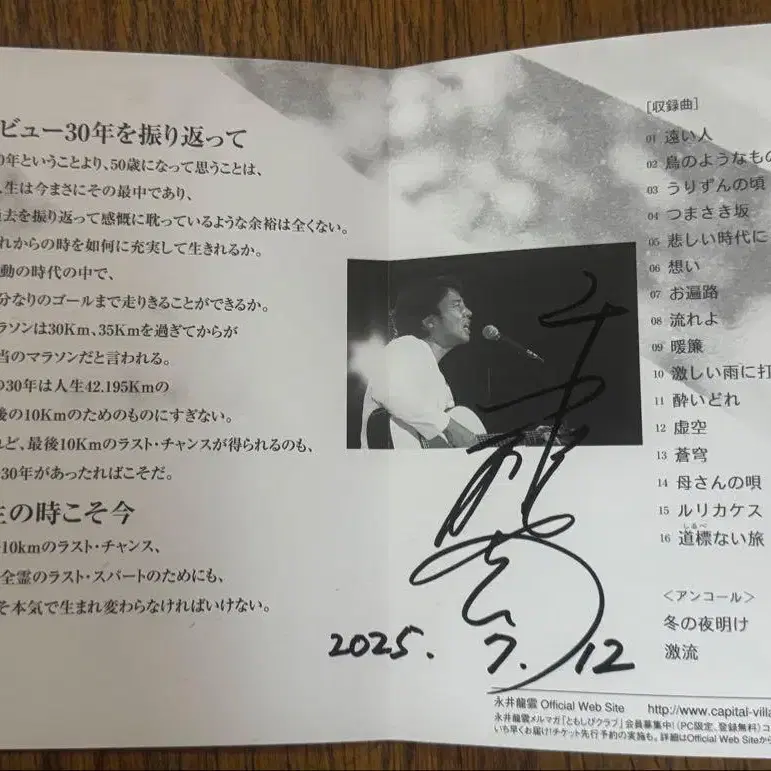 ビュー30年を振り返って
0年ということより、50歳になって思うことは、
人生は今まさにその最中であり、
過去を振り返って感慨に耽っているような余裕は全くない。
れからの時を如何に充実して生きれるか。
動の時代の中で、
分なりのゴールまで走りきることができるか。
ラソンは30Km、35Kmを過ぎてからが
当のマラソンだと言われる。
の30年は人生42.195Kmの
後の10Kmのためのものにすぎない。
れど、最後10Kmのラスト・チャンスが得られるのも、
30年があったればこそだ。
生の時こそ今
10kmのラスト・チャンス、
全霊のラスト・スパートのためにも、
そ本気で生まれ変わらなければいけない。
2025. 7. 12
[収録曲]
01 遠い人
02 鳥のようなもの
03 うりずんの頃
04 つまさき坂
05 悲しい時代に
06 想い
07 お遍路
08 流れよ
09 暖簾
10 激しい雨に打
11 酔いどれ
12 虚空
13 蒼穹
14 母さんの唄
15 ルリカケス
しるべ
16 道標ない旅
＜アンコール＞
冬の夜明け
激流
永井龍雲 Official Web Site http://www.capital-villa
永井龍雲メルマガ「ともしびクラブ」会員募集中!(PC限定、登録無料)コ
いち早くお届け!チケット先行予約の実施も。詳細はOfficial Web Siteから